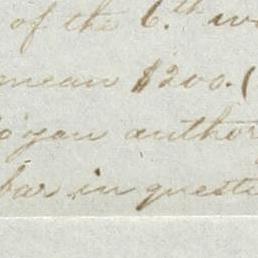 of the 6.th
mean $200. (
you author
bar in questi